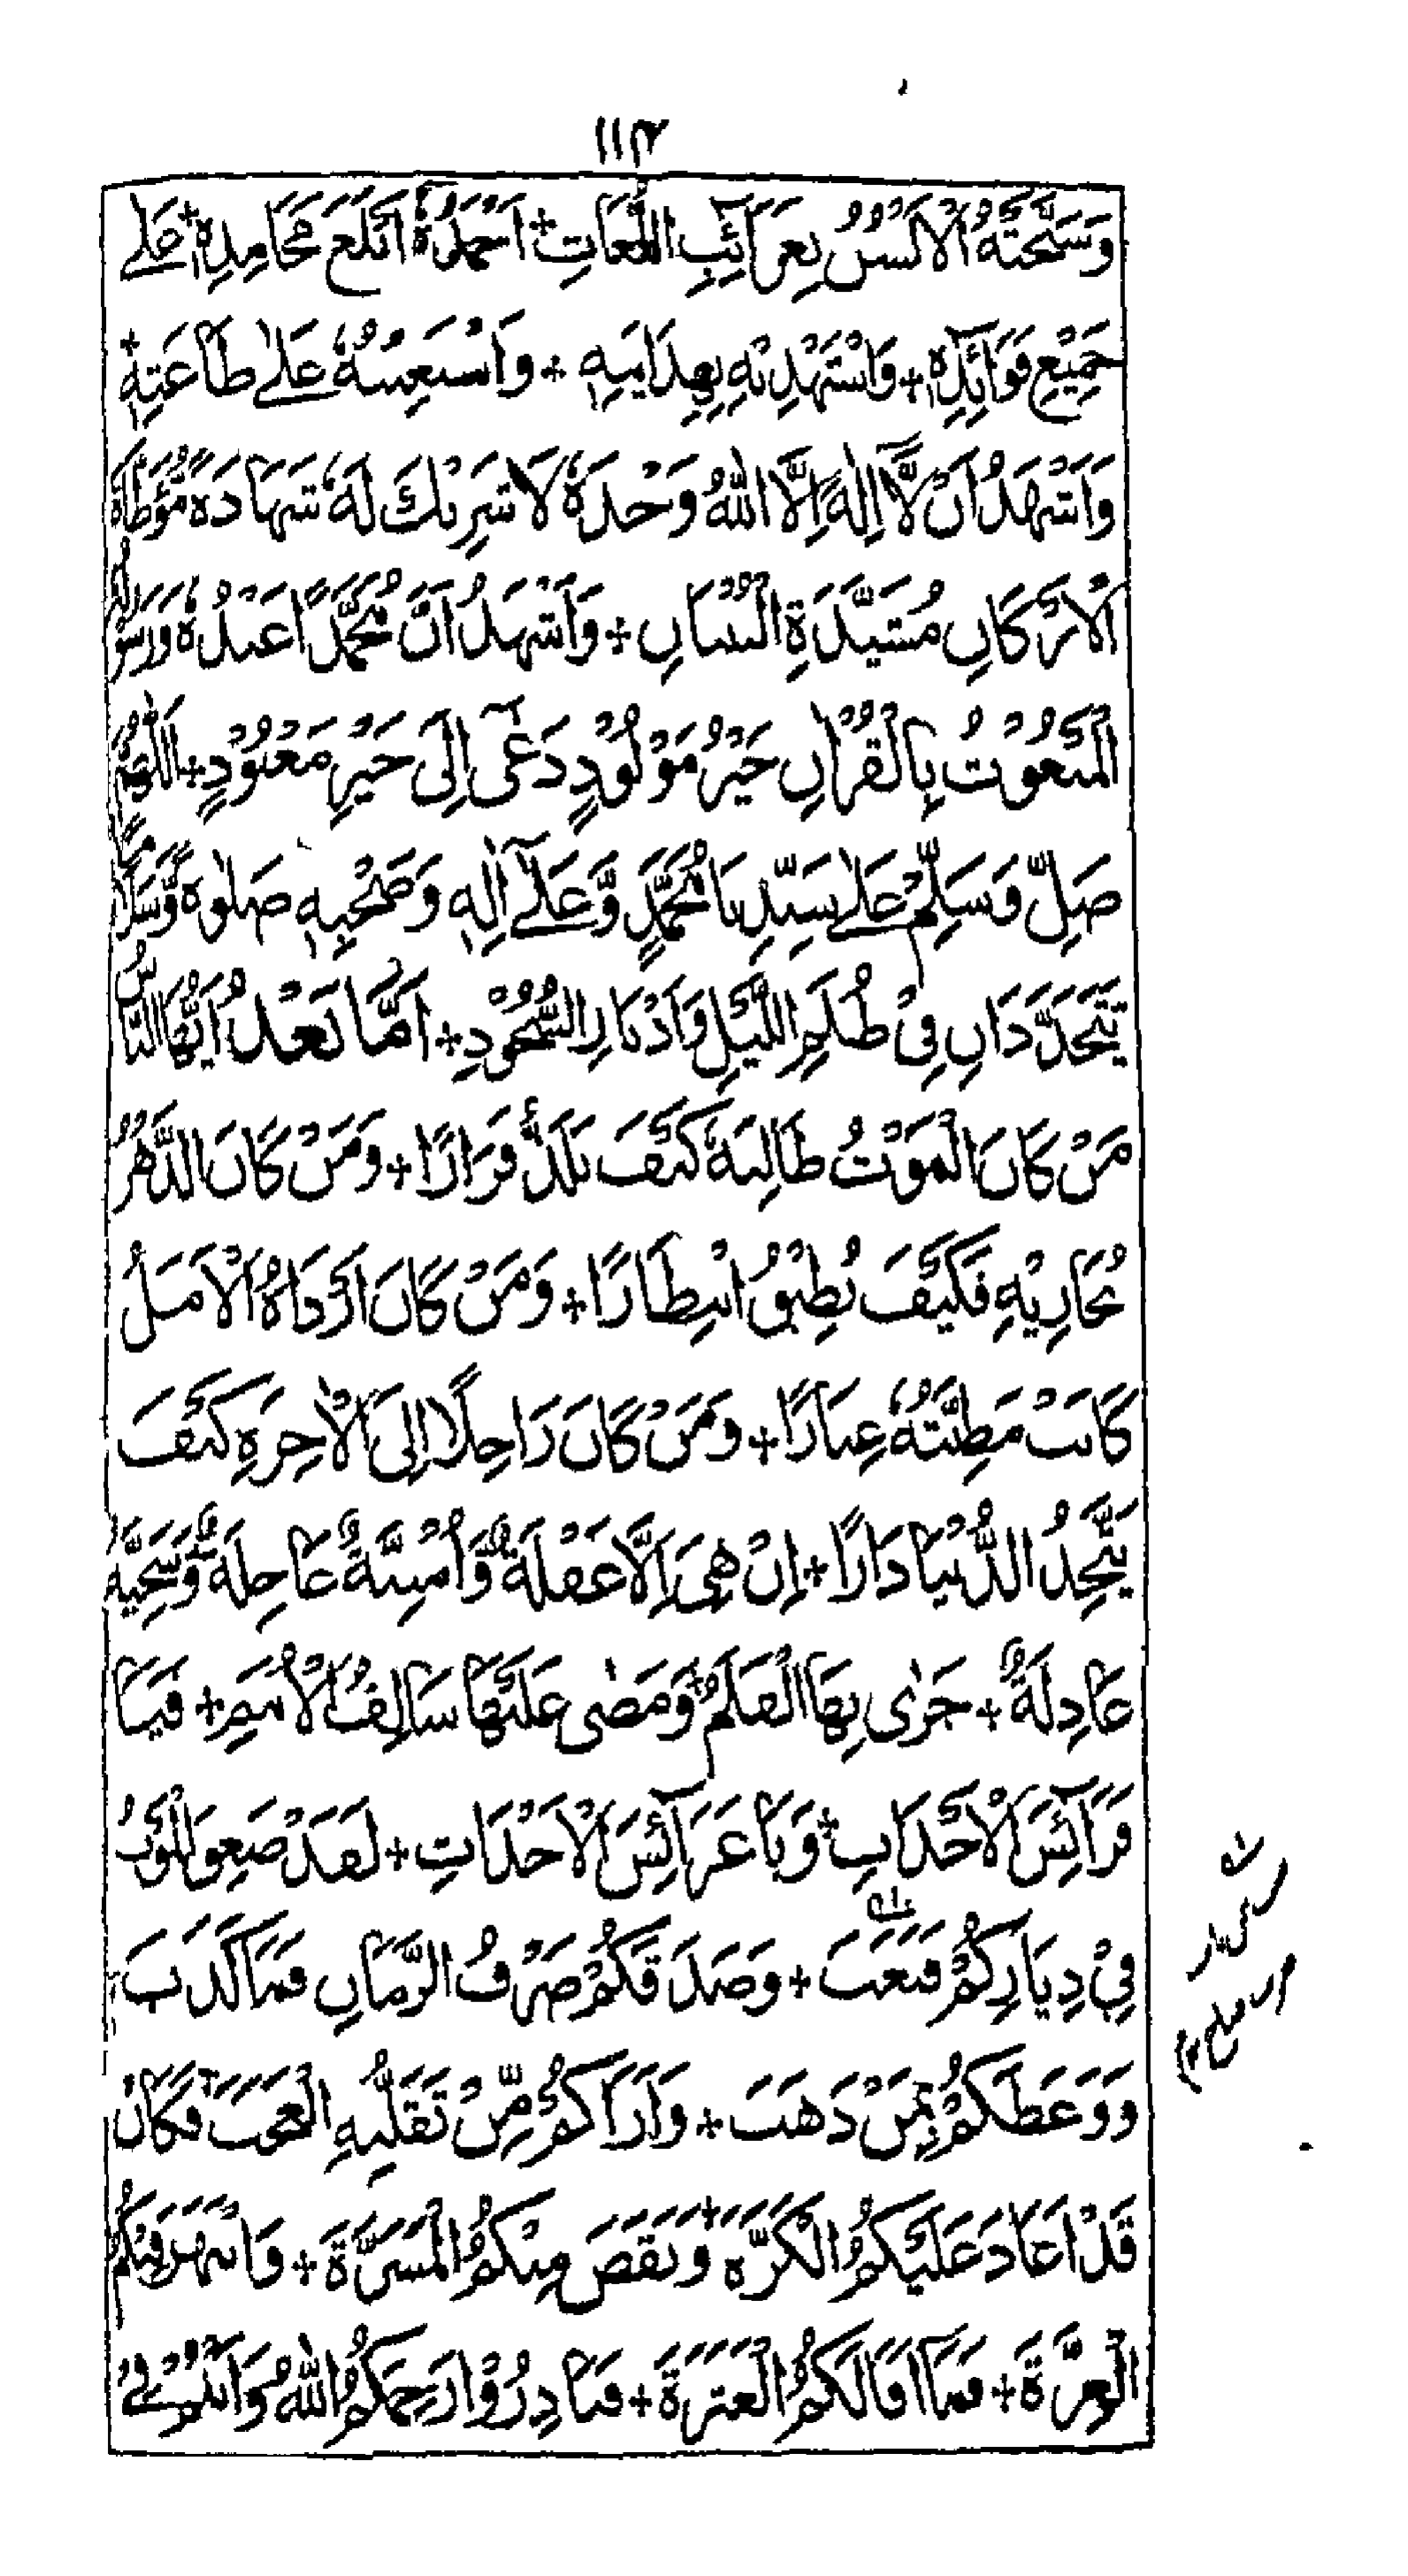 ١١٣
وَسَبَّحَتْهُ الْاَلْسُنُ بِغَرَآئِبِ اللُّغَاتِ + اَحْمَدُهٗ اَبْلَغَ مَحَامِدِهٖ + عَلٰى
جَمِيْعِ فَوَآئِدِهٖ + وَاَسْتَهْدِيْهِ بِهِدَايَتِهٖ + وَاَسْتَعِيْنُهٗ عَلٰى طَاعَتِهٖ +
وَاَشْهَدُ اَنْ لَّآ اِلٰهَ اِلَّا اللّٰهُ وَحْدَهٗ لَا شَرِيْكَ لَهٗ شَهَادَةً مُّوَطَّاَةَ
الْاَرْكَانِ مُشَيَّدَةِ الْبُنْيَانِ + وَاَشْهَدُ اَنَّ مُحَمَّدًا عَبْدُهٗ وَرَسُوْلُهُ
الْمَبْعُوْثُ بِالْقُرْاٰنِ خَيْرُ مَوْلُوْدٍ دَعٰٓى اِلٰى خَيْرِ مَعْبُوْدٍ + اَللّٰهُمَّ
صَلِّ وَسَلِّمْ عَلٰى سَيِّدِنَا مُحَمَّدٍ وَّعَلٰٓى اٰلِهٖ وَصَحْبِهٖ صَلٰوةً وَّسَلَامًا
يَتَجَدَّدَانِ فِيْ ظُلَمِ اللَّيْلِ وَاَدْبَارِ السُّجُوْدِ + اَمَّا بَعْدُ اَيُّهَا النَّاسُ
مَنْ كَانَ الْمَوْتُ طَالِبَهٗ كَيْفَ يَلَذُّ قَرَارًا + وَمَنْ كَانَ الدَّهْرُ
يُحَارِبُهٗ فَكَيْفَ يُطِيْقُ انْتِظَارًا + وَمَنْ كَانَ اَرْدَاهُ الْاَمَلُ
كَانَتْ مَطِيَّتُهٗ عِثَارًا + وَمَنْ كَانَ رَاحِلًا اِلَى الْاٰخِرَةِ كَيْفَ
يَتَّخِذُ الدُّنْيَا دَارًا + اِنْ هِيَ اِلَّا غَفْلَةٌ وَّاُمْنِيَّةٌ عَاجِلَةٌ وَّسَجِيَّةٌ
عَادِلَةٌ + جَرٰى بِهَا الْقَلَمُ + وَمَضٰى عَلَيْهَا سَالِفُ الْاُمَمِ + فَيَا
فَرَآئِسَ الْاَجْدَاثِ + وَيَا عَرَآئِسَ الْاَحْدَاثِ + لَقَدْ
فِيْ دِيَارِكُمْ فَنَعَبَ + وَصَدَقَكُمْ صَرْفُ الزَّمَانِ فَمَا كَذَبَ
وَوَعَظَكُمْ بِمَنْ ذَهَبَ + وَاَرَاكُمْ مِّنْ تَقَلُّبِهِ الْعَجَبَ + فَكَاَنْ
قَدْ اَعَادَ عَلَيْكُمُ الْكَرَّةَ + وَنَقَصَ مِنْكُمُ الْمَسَرَّةَ + وَانْتَهَزَ فِيْكُمُ
الْغِرَّةَ + فَمَا اَقَالَكُمُ الْعَثْرَةَ + فَبَادِرُوْا رَحِمَكُمُ اللّٰهُ وَاَنْتُمْ فِيْ